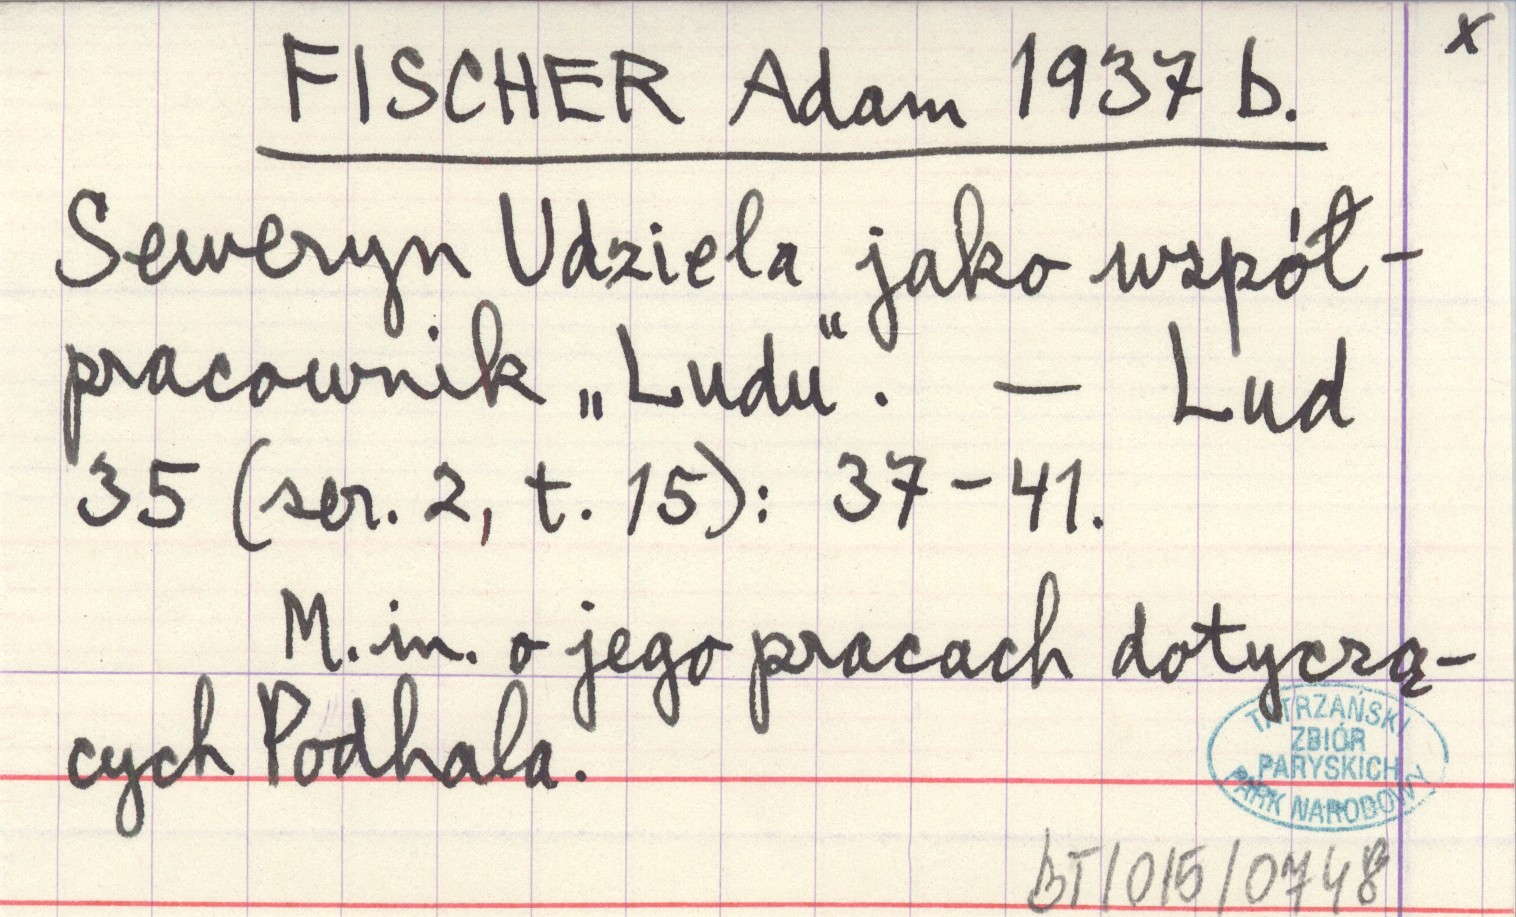 x
FISCHER Adam 1937 b.
Seweryn Udziela jako współ-
pracownik „Ludu“. — Lud
35 (ser. 2, t. 15): 37-41.
M. in. o jego pracach dotyczą-
cych Podhala.
TATRZAŃSKI
ZBIÓR
PARYSKICH
PARK NARODOWY
BT/015/0748